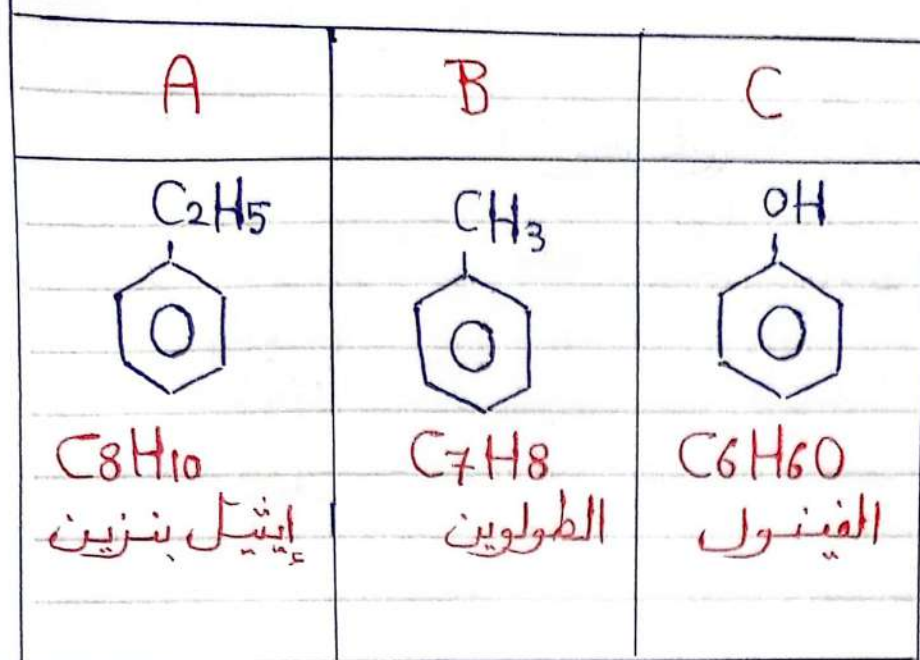 A B C
C2H5 CH3 OH
C8H10 C7H8 C6H6O
إيثيل بنزين الطولوين الفينول